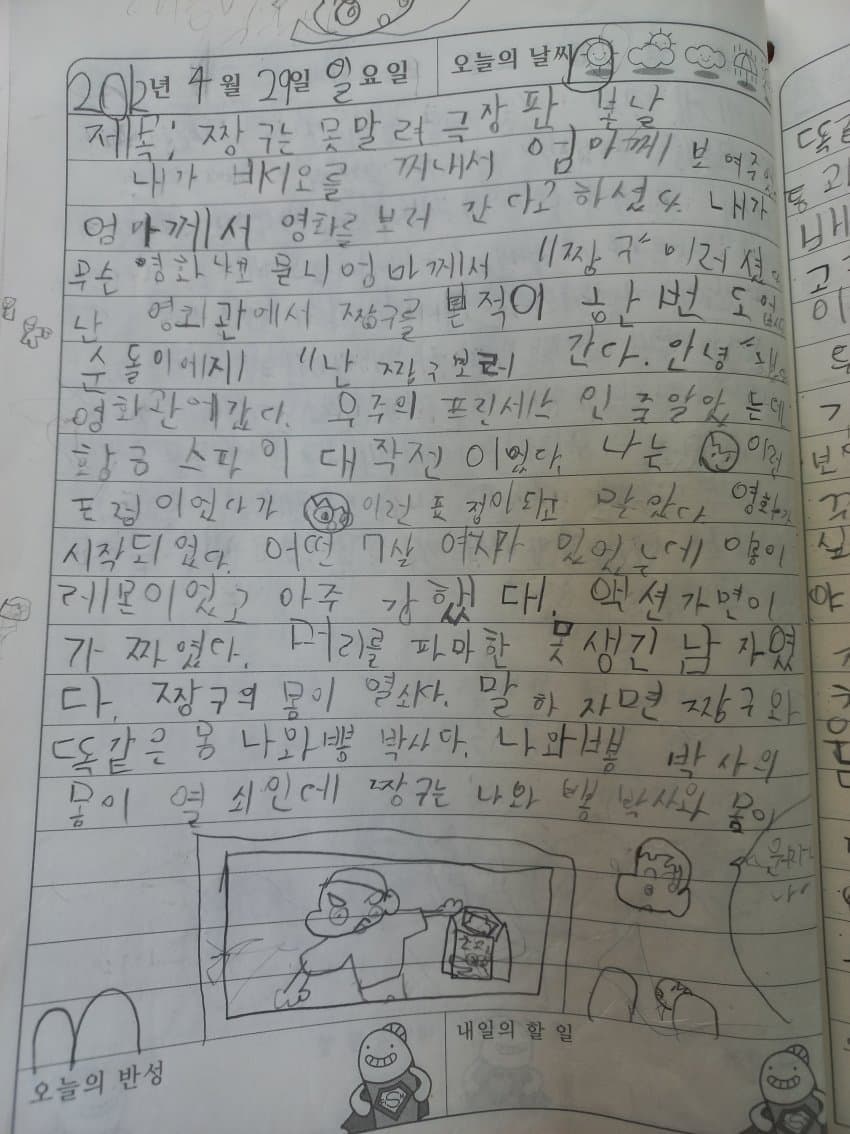 2012년 4월 29일 일요일 오늘의 날씨
제목: 짱구는 못말려 극장판 본날
내가 비디오를 찌내서 엄마께 보여주
엄마께서 영화를 보러 간다고 하셨다. 내가
무슨 영화냐고 물니 엄마께서 "짱구" 이러셨
난 영화관에서 짱구를 본적이 한번도
순돌이에게 "난 짱구보러 간다. 안녕"
영화관에 갔다. 우주의 프린세스 인줄알았는데
황금 스파이 대작전이었다. 나는 이런
표정이었다가 이런 표정이되고 말았다 영화가
시작되었다. 어떤 7살 여자가 있었는데 이름이
레몬이었고 아주 강했대. 액션가면이
가짜였다. 머리를 파마한 못생긴 남자였
다. 짱구의 몸이 열쇠다. 말하자면 짱구와
똑같은 몽 나와뿡 박사다. 나와뿡 박사의
몸이 열쇠인데 짱구는 나와뿡 박사와 몸이
오늘의 반성
내일의 할 일